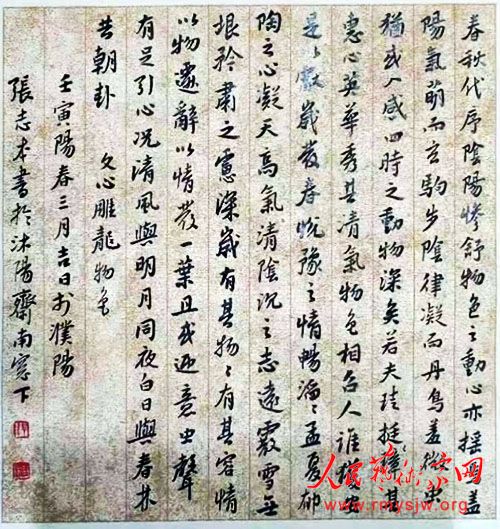 春秋代序陰陽慘舒物色之動心亦揺焉盖
陽氣萌而玄駒步陰律凝而丹鳥羞微虫
猶或入感四時之動物深矣若夫珪挺璋其
惠心英華秀其清氣物色相召人誰獲安
是以獻歲發春悦豫之情暢滔〻孟夏郁
陶之心凝天高氣清陰沉之志遠霰雪無
垠矜肅之慮深歲有其物〻有其容情
以物遷辭以情發一葉且或迎意虫聲
有足引心况清風與明月同夜白日與春林
共朝哉 文心雕龍物色
壬寅陽春三月吉日於濮陽
張志本書於沐陽齋南窓下
人民藝術家网
www.rmysjw.org